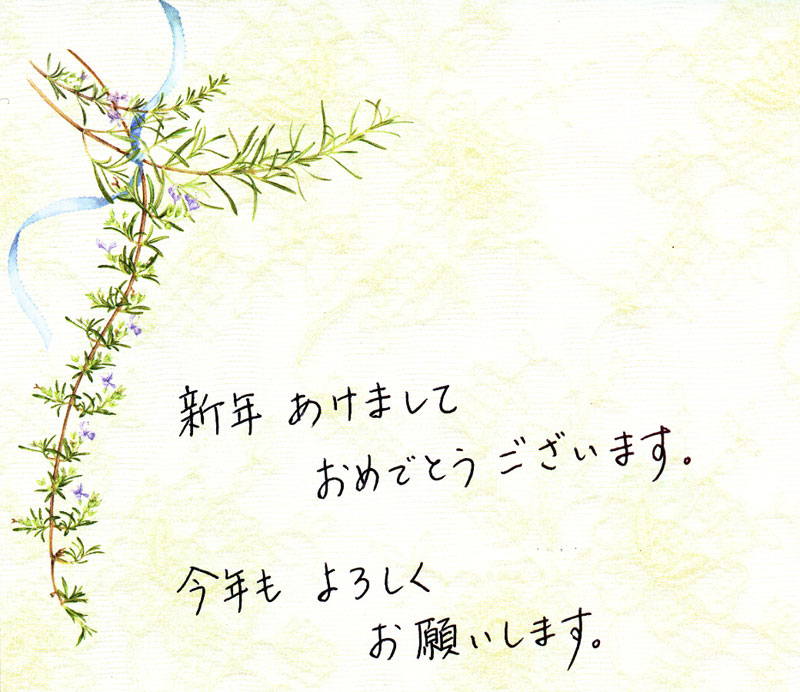 新年 あけまして
おめでとうございます。
今年も よろしく
お願いします。